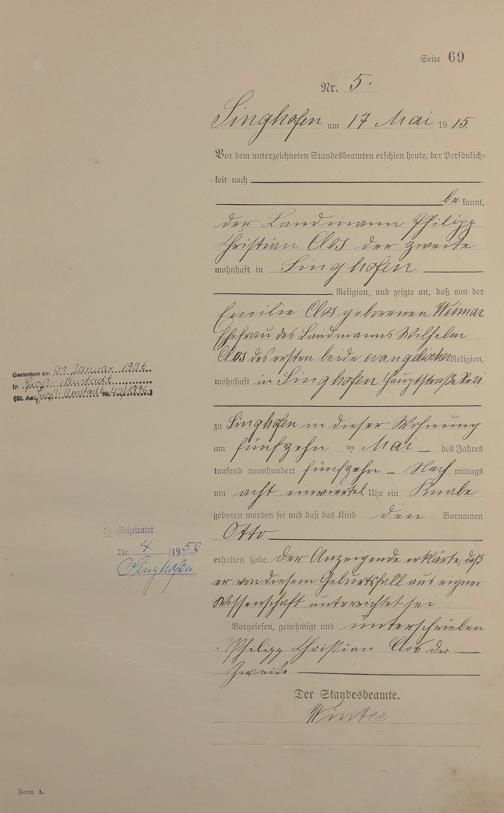 Seite 69
Nr. 5.
Singhofen am 17 Mai 1915.
Vor dem unterzeichneten Standesbeamten erschien heute, der Persönlich-
keit nach
be kannt,
der Landmann Philipp
Christian Clos der zweite
wohnhaft in Singhofen
Religion, und zeigte an, daß von der
Emilie Clos geborenen Weimar
Ehefrau des Landmanns Wilhelm
Clos des ersten beide evangelischer Religion,
wohnhaft in Singhofen Hauptstraße
zu Singhofen in dieser Wohnung
am fünfzehn ten Mai des Jahres
tausend neunhundert fünfzehn Nach mittags
um acht einviertel Uhr ein Knabe
geboren worden sei und daß das Kind den Vornamen
Otto
erhalten habe. Der Anzeigende erklärte, daß
er von diesem Geburtsfall aus eigner
Wissenschaft unterrichtet sei
Vorgelesen, genehmigt und unterschrieben
Philipp Christian Clos der
Zweite
Der Standesbeamte.
Winter
Gestorben am 21. Januar
in Groß-Umstadt
(St. Amt Groß-Umstadt Nr.
Geheiratet
Nr. 4 /1950
Singhofen
Form. A.